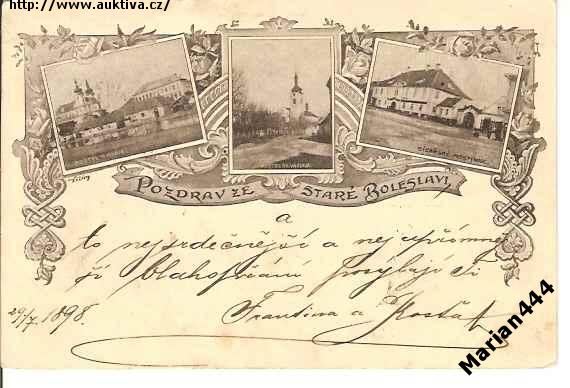 http://www.auktiva.cz/
POZDRAV ZE STARÉ BOLESLAVI,
a
to nejsrdečnější a nejupřímněj
ší blahopřání posýlají Ti
Frantina a
29/7 1898.
Marian444